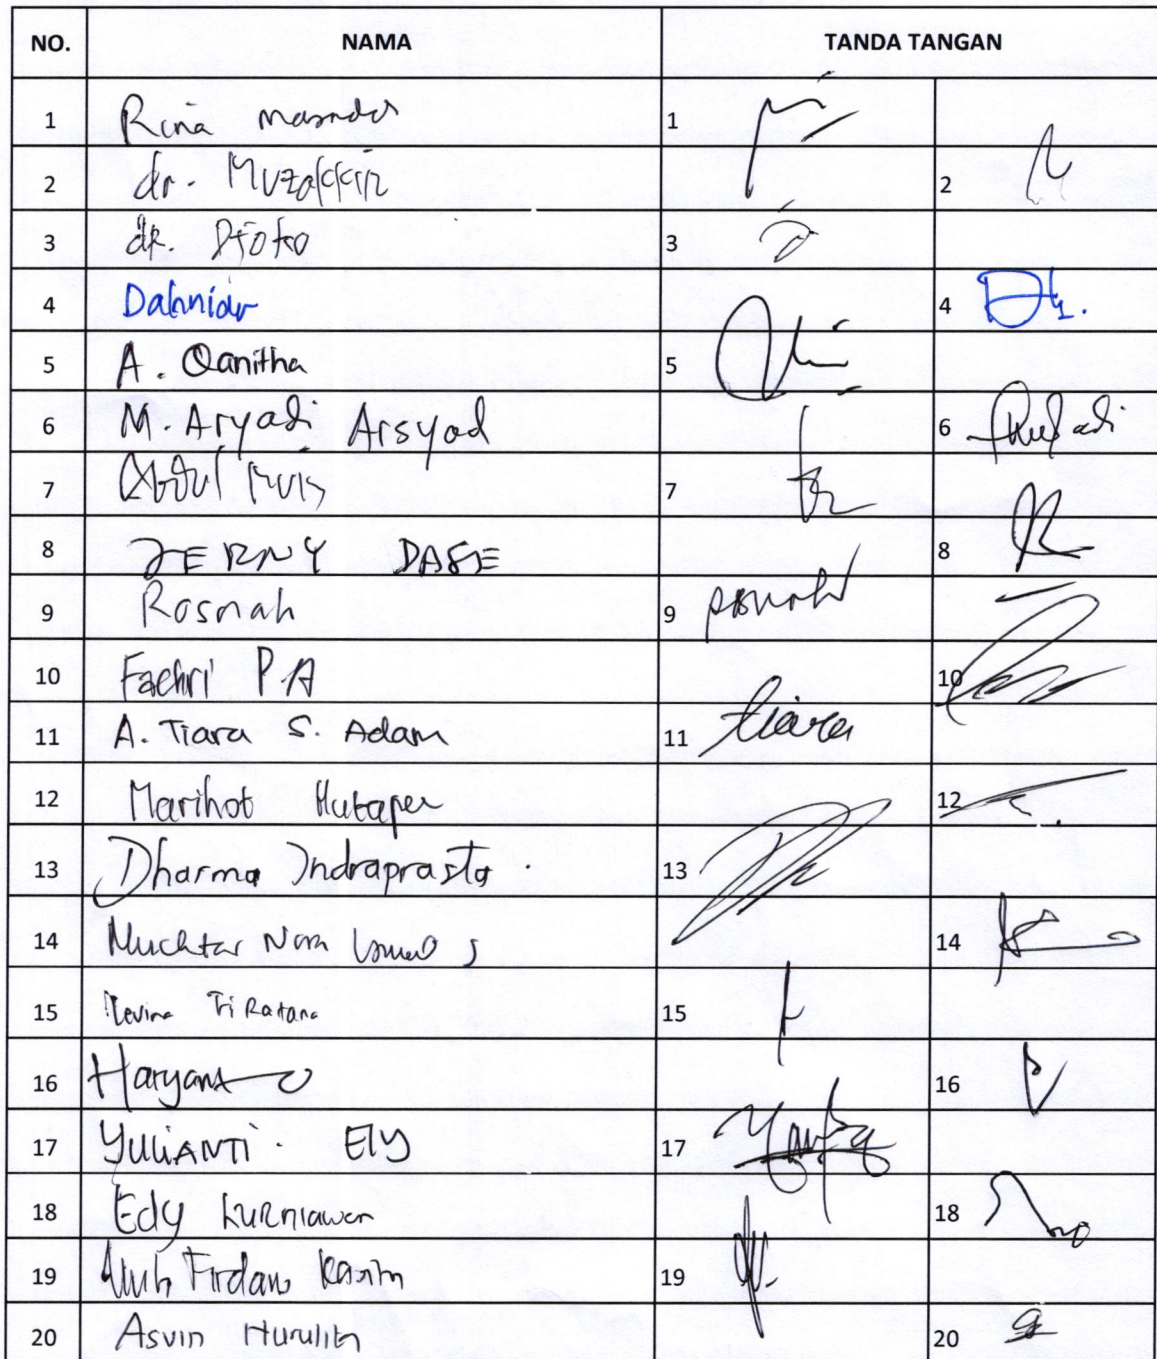 NO. NAMA TANDA TANGAN
1 Rina 1
2 dr. Muzakkir 2
3 dr. Djoko 3
4 Dahniar 4
5 A. Qanitha 5
6 M. Aryadi Arsyad 6
7 Abdul Muis 7
8 JERNY DASE 8
9 Rosmah 9
10 Fachri P A 10
11 A. Tiara S. Adam 11 tiara
12 Marihot Hutapea 12
13 Dharma Indraprasta 13
14 Muchtar Nora 14
15 Tri Ratana 15
16 Haryanto 16
17 YULIANTI ELY 17
18 Edy Kurniawan 18
19 Muh Firdaus Kasim 19
20 Asvin Nurulita 20